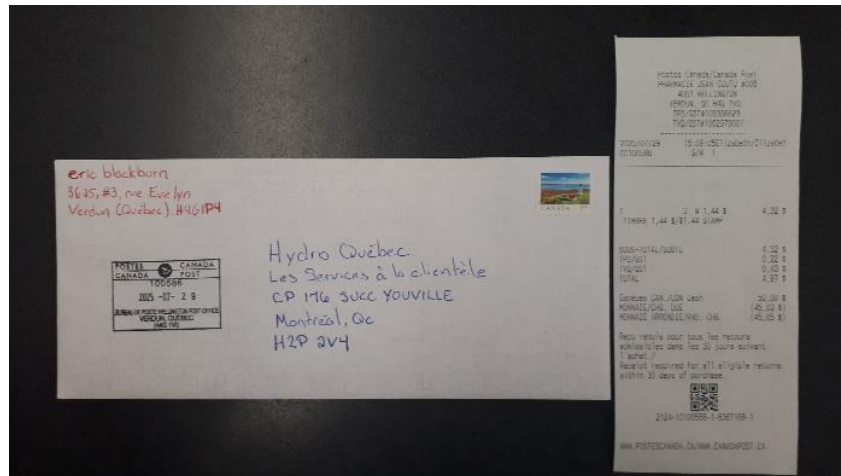 eric blackburn
3625, #3, rue Evelyn
Verdun (Québec) H4G1P4
CANADA
POSTES CANADA
CANADA POST
100586
2025 -07- 29
BUREAU DE POSTE WELLINGTON POST OFFICE
VERDUN, QUÉBEC
Hydro Québec
Les Services à la clientèle
CP 176 SUCC YOUVILLE
Montréal, Qc
H2P 2V4
Postes Canada/Canada Post
PHARMACIE JEAN COUTU
WELLINGTON
VERDUN, QC H4G
TPS/GST#
TVQ/QST#
2025/07/29 15:09:05
G/W 1
3 @ 1,44 $ 4,32 $
TIMBRE 1,44 $/$1.44 STAMP
SOUS-TOTAL/SUBTL 4,32 $
TPS/GST 0,22 $
TVQ/QST 0,43 $
TOTAL 4,97 $
Espèces CAN./CDN Cash 50,00 $
MONNAIE/CHG. DUE (45,03 $)
MONNAIE ARRONDIE/RND. CHG. (45,05 $)
Reçu requis pour tous les retours
admissibles dans les 30 jours suivant
l'achat./
Receipt required for all eligible returns
within 30 days of purchase.
WWW.POSTESCANADA.CA/WWW.CANADAPOST.CA